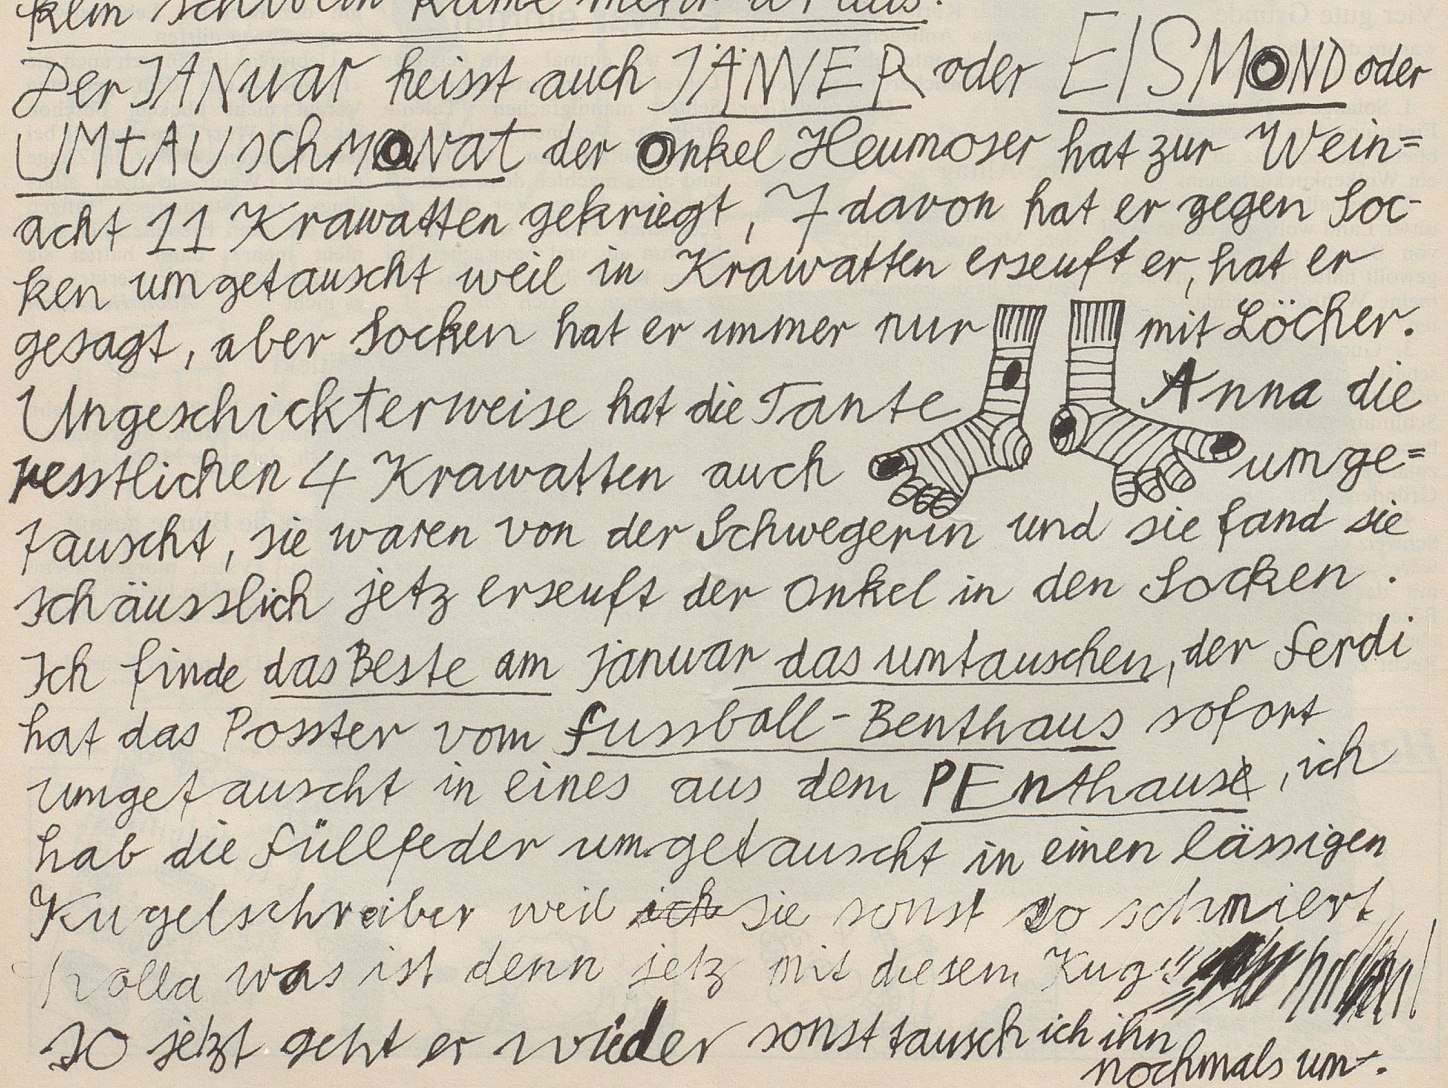 kein schwein käme mehr draus.
Der JANuar heisst auch JÄNNER oder EISMOND oder
UMtAUschMONat der onkel Heumoser hat zur Wein=
acht 11 Krawatten gekriegt, 7 davon hat er gegen Soc-
ken umgetauscht weil in Krawatten erseuft er, hat er
gesagt, aber Socken hat er immer nur mit Löcher.
Ungeschickterweise hat die Tante Anna die
resstlichen 4 Krawatten auch umge=
tauscht, sie waren von der Schwegerin und sie fand sie
schäusslich jetz erseuft der onkel in den Socken.
Ich finde das Beste am Januar das umtauschen, der Ferdi
hat das Posster vom Fussball-Benthaus sofort
umgetauscht in eines aus dem PEnthause, ich
hab die Füllfeder umgetauscht in einen lässigen
Kugelschreiber weil ich sie sonst so schmiert
holla was ist denn jetz mit diesem Kug!!
so jetzt geht er wieder sonst tausch ich ihn
nochmals um.